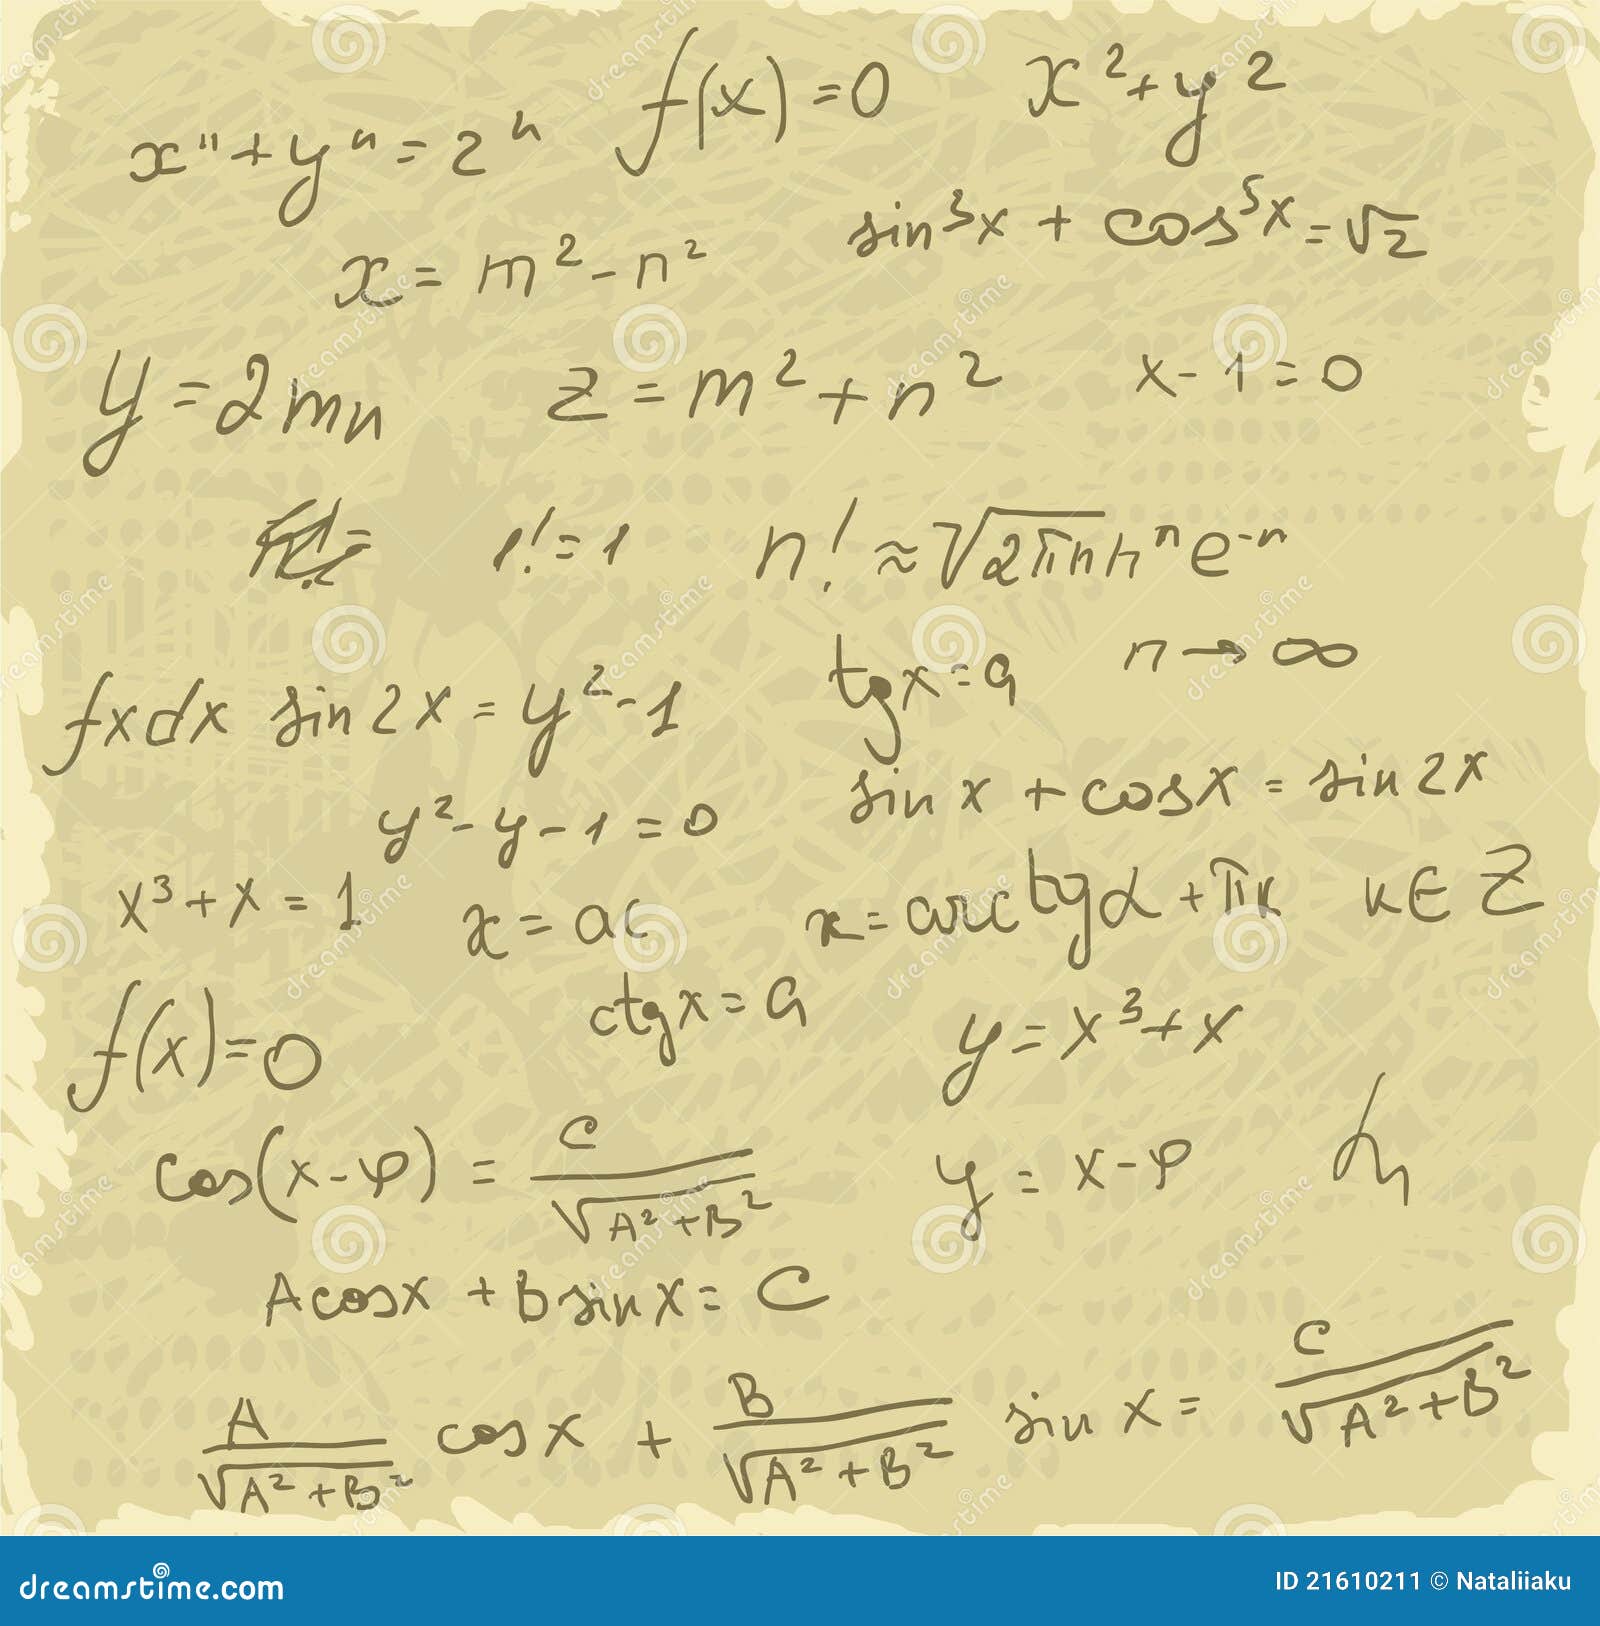 f(x) = 0   x² + y²
xⁿ + yⁿ = 2ⁿ
sin³x + cos⁵x = √2
x = m² - n²
y = 2mn   z = m² + n²   x - 1 = 0
1! = 1   n! ≈ √2πn nⁿ e⁻ⁿ
tg x = a   n → ∞
fxdx sin 2x = y² - 1
sin x + cos x = sin 2x
y² - y - 1 = 0
x³ + x = 1   x = ac   x = arctg α + πk   k ∈ Z
f(x) = 0   ctg x = a   y = x³ + x
cos(x - φ) = C / √A² + B²   y = x - φ
A cos x + B sin x = C
A / √A² + B² cos x + B / √A² + B² sin x = C / √A² + B²
dreamstime.com   ID 21610211 © Nataliiaku